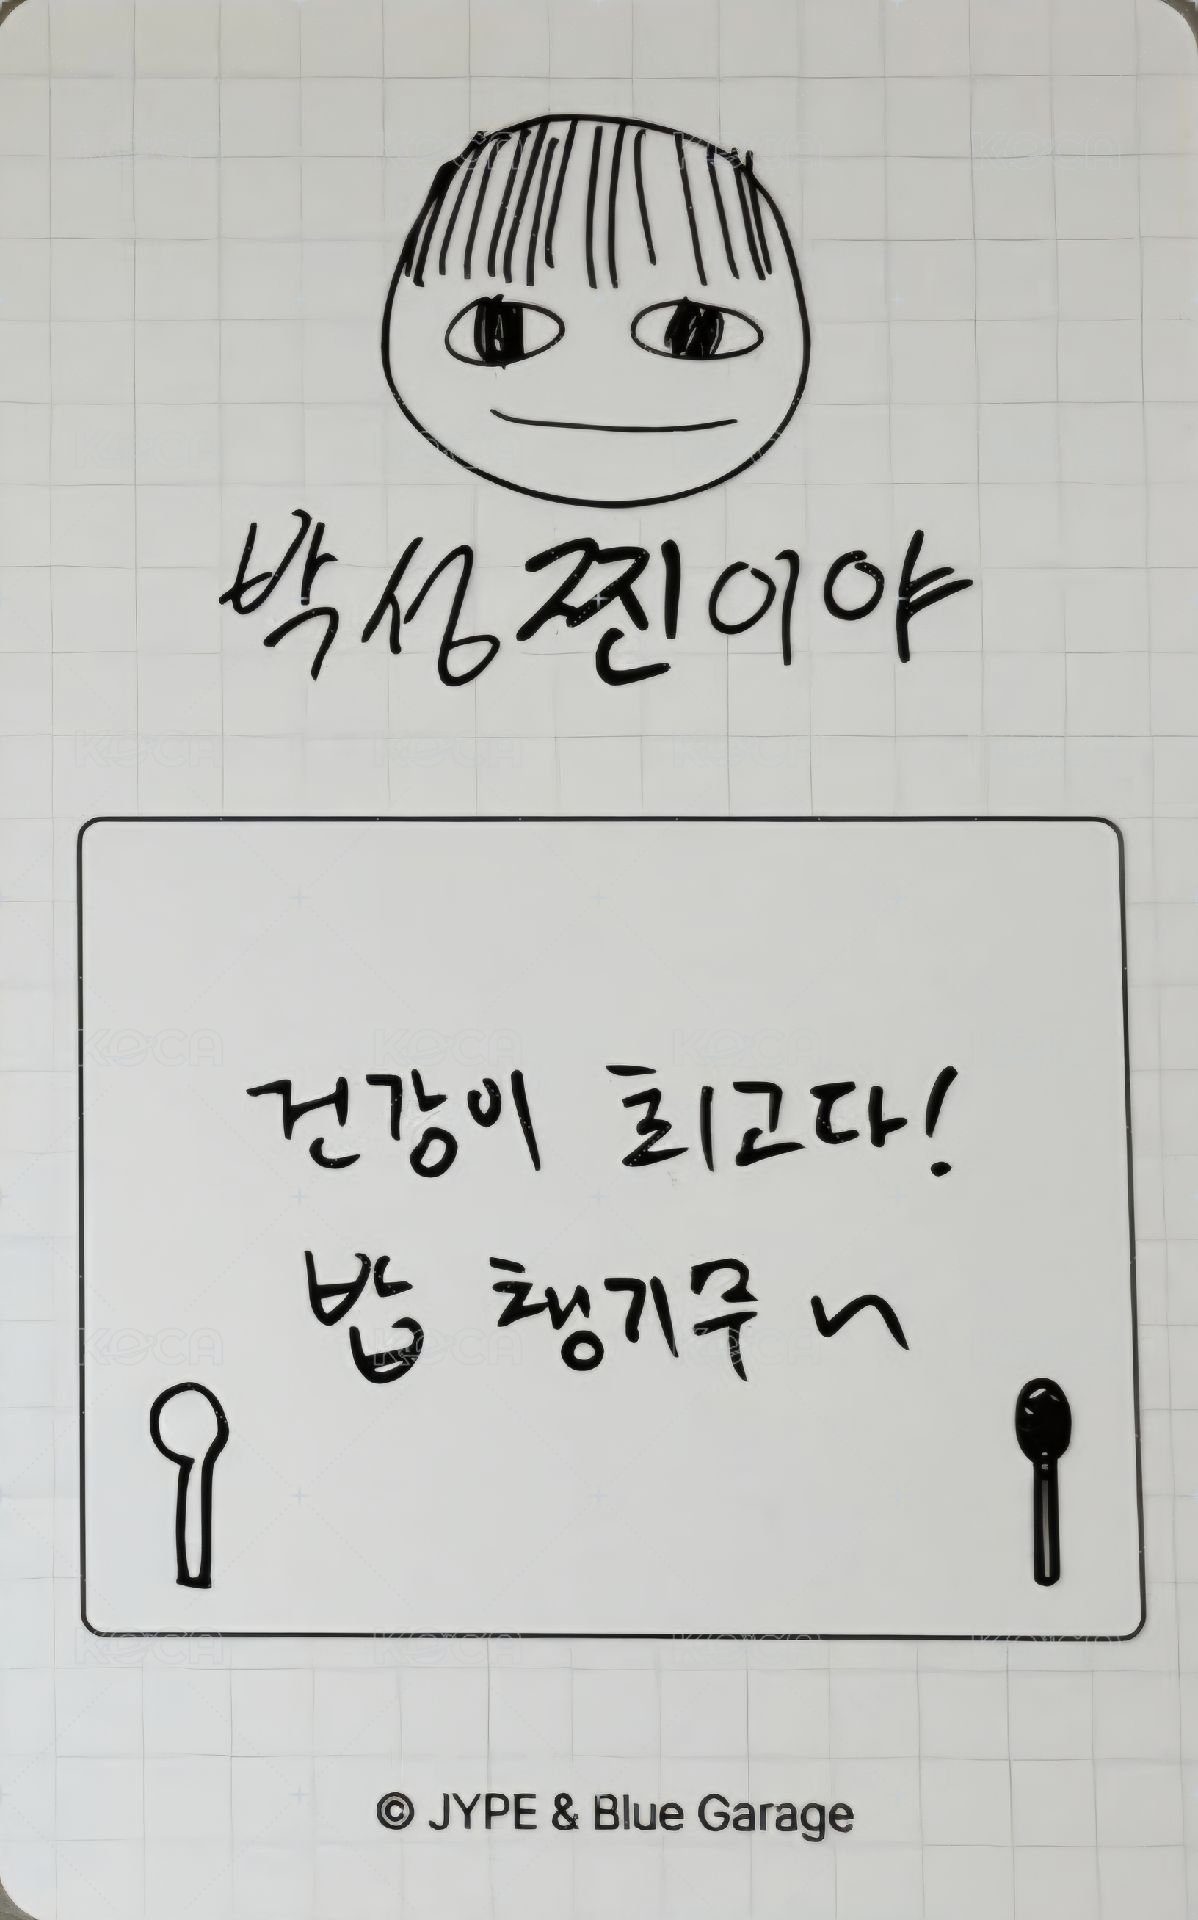 박성찐이야
건강이 최고다!
밥 챙기주 ~
© JYPE & Blue Garage
KOCA